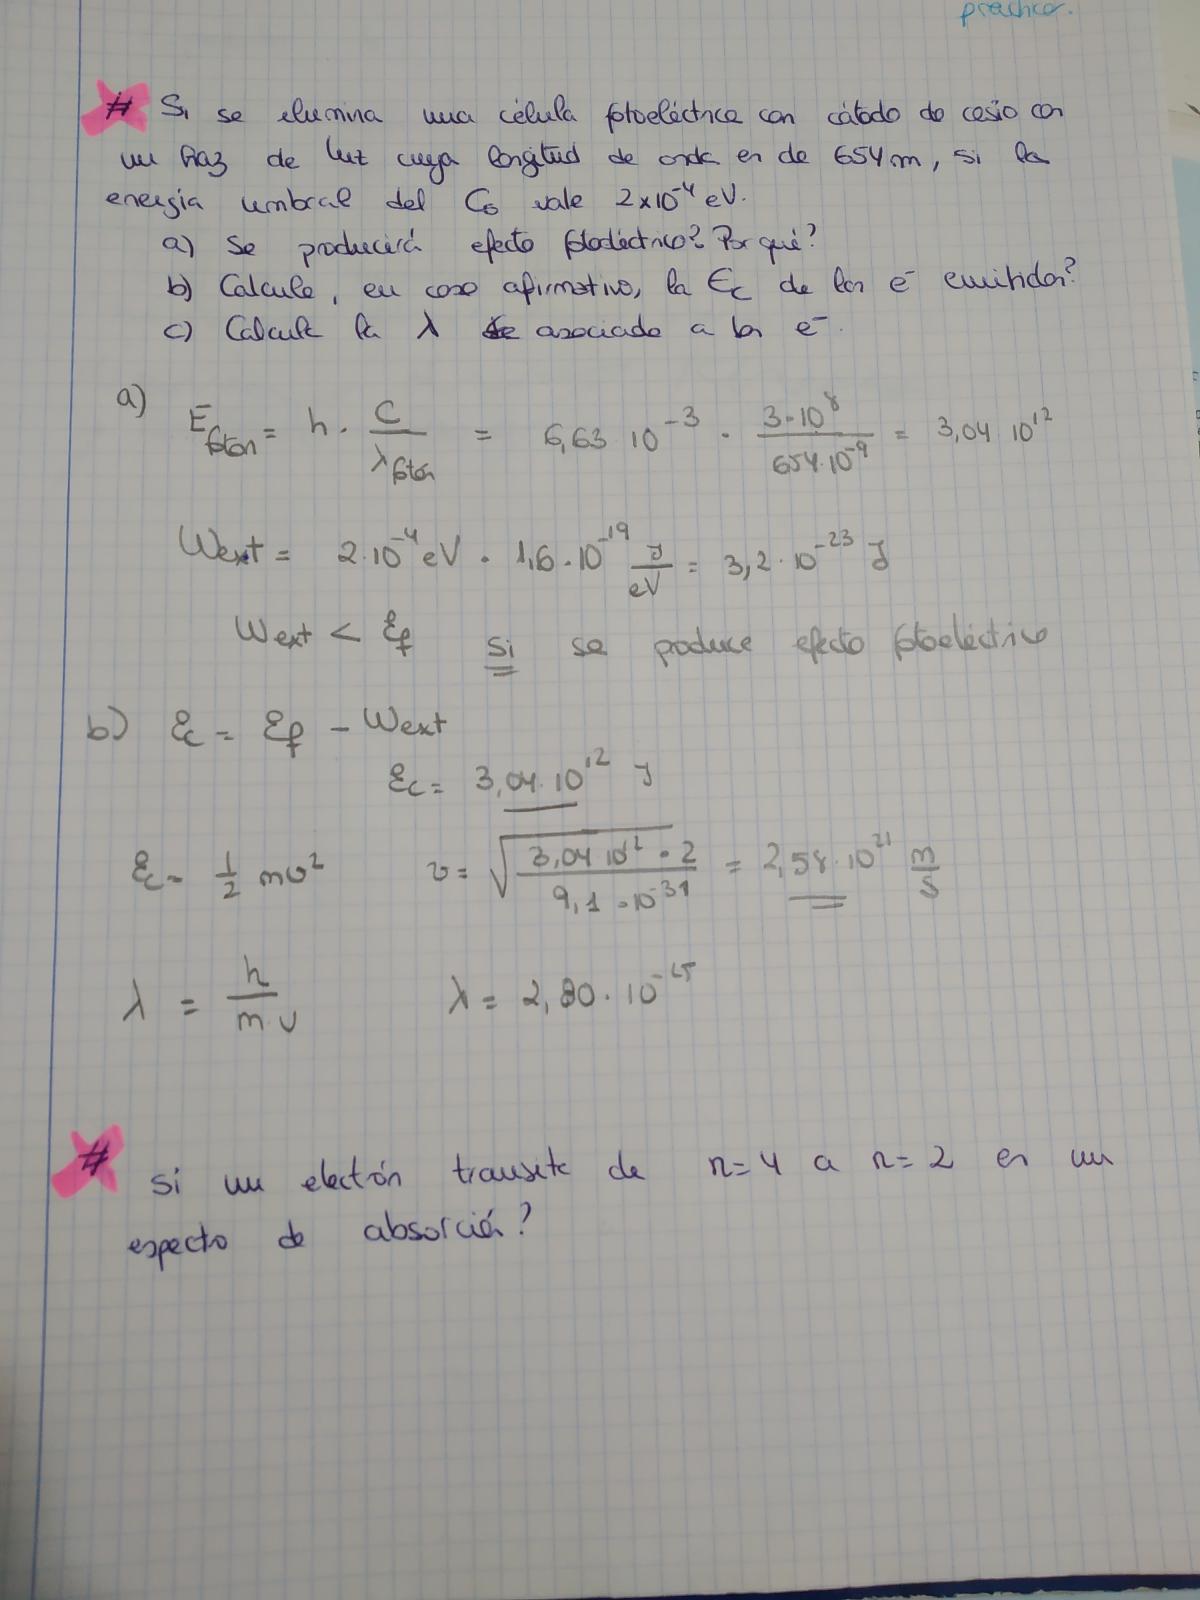 practica.
# Si se ilumina una célula fotoeléctrica con cátodo de cesio con
un haz de luz cuya longitud de onda es de 654 m, si la
energía umbral del Cs vale 2x10⁻⁴ eV.
a) Se producirá efecto fotoeléctrico? Por qué?
b) Calcule, en caso afirmativo, la Ec de los e⁻ emitidos?
c) Calcule la λ asociada a los e⁻.
a) E fotón = h · c / λ fotón = 6,63 10⁻³ · 3·10⁸ / 654·10⁻⁹ = 3,04 10¹²
Wext = 2·10⁻⁴ eV · 1,6·10⁻¹⁹ J/eV = 3,2·10⁻²³ J
Wext < Ef si se produce efecto fotoeléctrico
b) Ec = Ef - Wext
Ec = 3,04·10¹² J
Ec = 1/2 mv² v = √(3,04 10¹² · 2 / 9,1·10⁻³¹) = 2,58·10²¹ m/s
λ = h / m v λ = 2,80·10⁻²⁵
# Si un electrón transita de n=4 a n=2 es un
espectro de absorción?